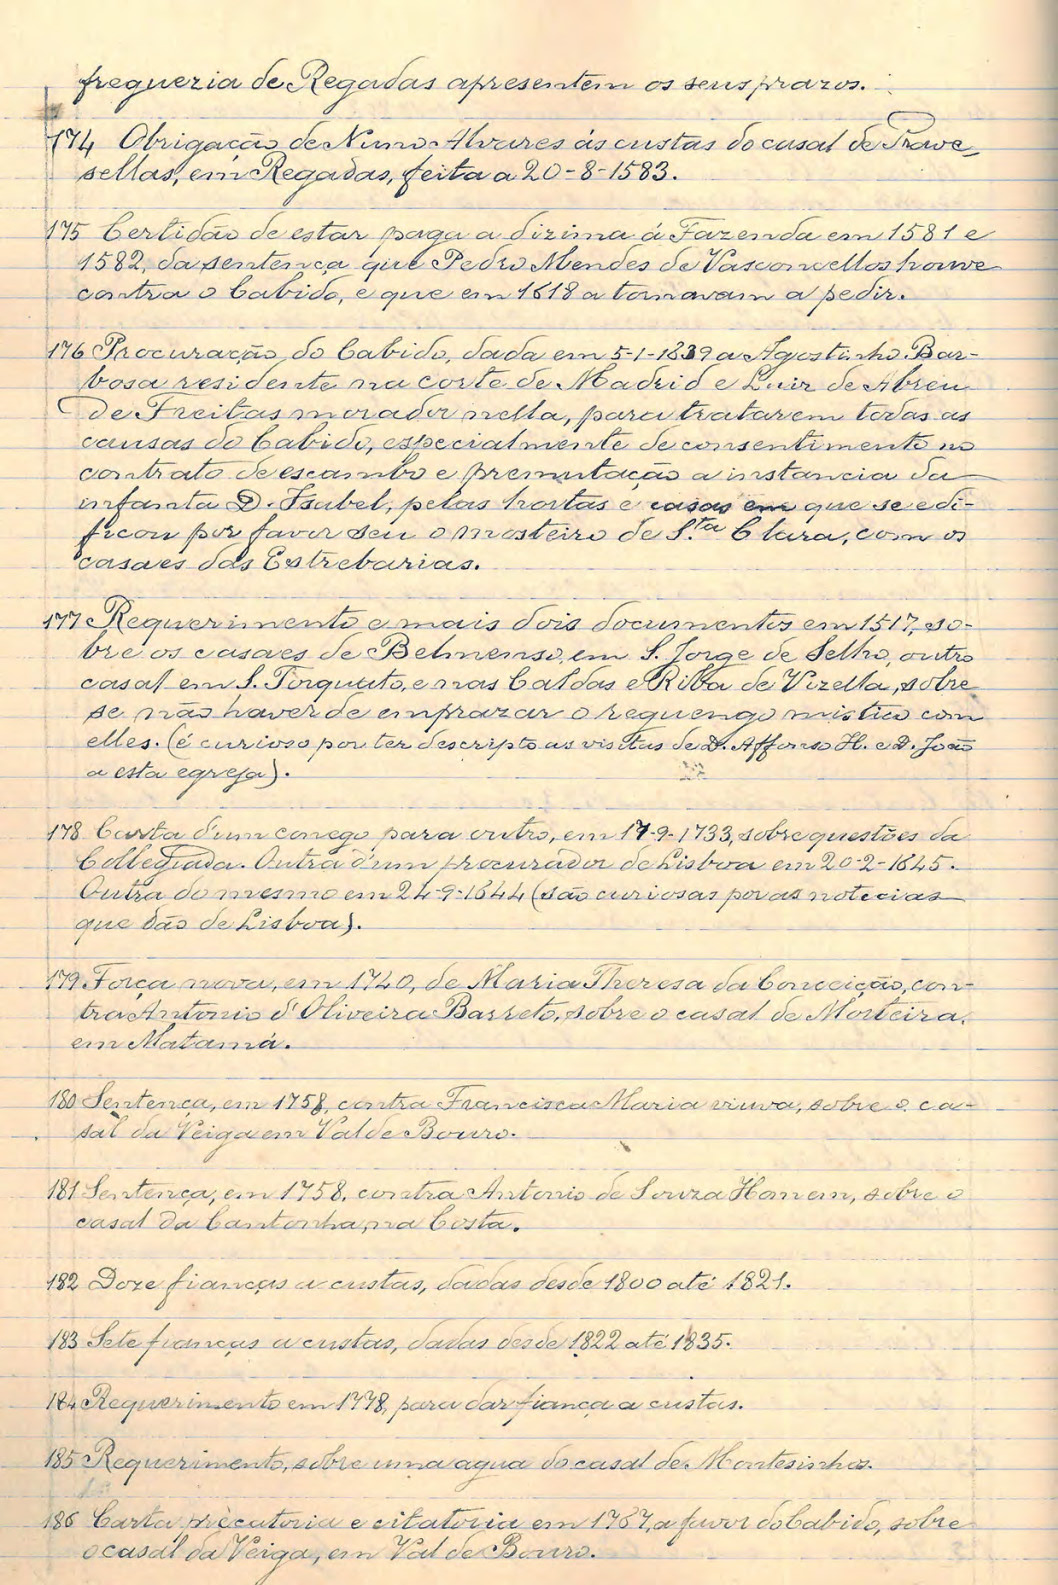 freguezia de Regadas apresentem os seus prazos.
174 Obrigação de Nuno Alvares ás custas do casal de Trave-
sellas, em Regadas, feita a 20-8-1583.
175 Certidão de estar paga a dizima á Fazenda em 1581 e
1582, da sentença que Pedro Mendes de Vasconcellos houve
contra o Cabido, e que em 1618 a tornavam a pedir.
176 Procuração do Cabido, dada em 5-1-1839 a Agostinho Bar-
bosa residente na corte de Madrid e Luiz de Abreu
de Freitas morador nella, para tratarem todas as
causas do Cabido, especialmente de consentimento no
contrato de escambo e premutação a instancia da
infanta D. Isabel, pelas hortas e casas em que se edi-
ficou por favor seu o mosteiro de S.ta Clara, com os
casaes das Estrebarias.
177 Requerimento e mais dois documentos em 1517, so-
bre os casaes de Belmenso, em S. Jorge de Selho, outro
casal em S. Torquato, e nas Caldas e Riba de Vizella, sobre
se não haver de emprazar o reguengo mistico com
elles. (é curioso por ter descripto as visitas de D. Affonso H. e D. João
a esta egreja).
178 Carta d'um conego para outro, em 17-9-1733, sobre questões da
Collegiada. Outra d'um procurador de Lisboa em 20-2-1645.
Outra do mesmo em 24-9-1644 (são curiosas por as noticias
que dão de Lisboa).
179 Força nova, em 1740, de Maria Theresa da Conceição, con-
tra Antonio d'Oliveira Barreto, sobre o casal de Morteira,
em Matamá.
180 Sentença, em 1758, contra Francisca Maria viuva, sobre o ca-
sal da Veiga em Val de Bouro.
181 Sentença, em 1758, contra Antonio de Souza Homem, sobre o
casal da Cantonha, na Costa.
182 Doze fianças a custas, dadas desde 1800 até 1821.
183 Sete fianças a custas, dadas desde 1822 até 1835.
184 Requerimento em 1778, para dar fiança a custas.
185 Requerimento, sobre uma agua do casal de Montesinhos.
186 Carta precatoria e citatoria em 1767, a favor do Cabido, sobre
o casal da Veiga, em Val de Bouro.